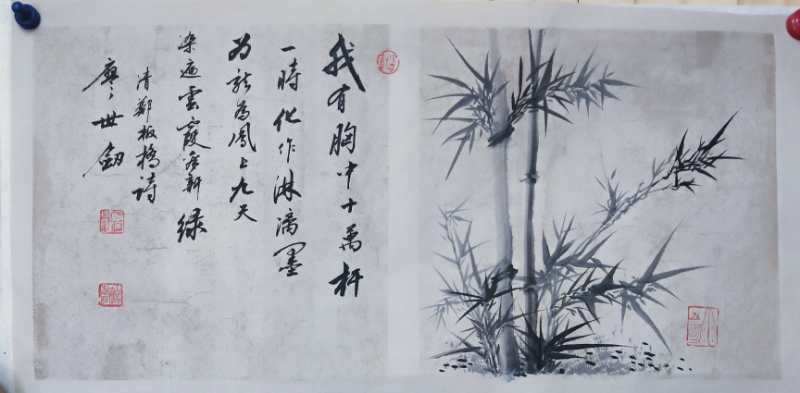 我有胸中十萬杆
一時化作淋漓墨
為龍為鳳上九天
染遍雲霞看新綠
清鄭板橋詩
廖世